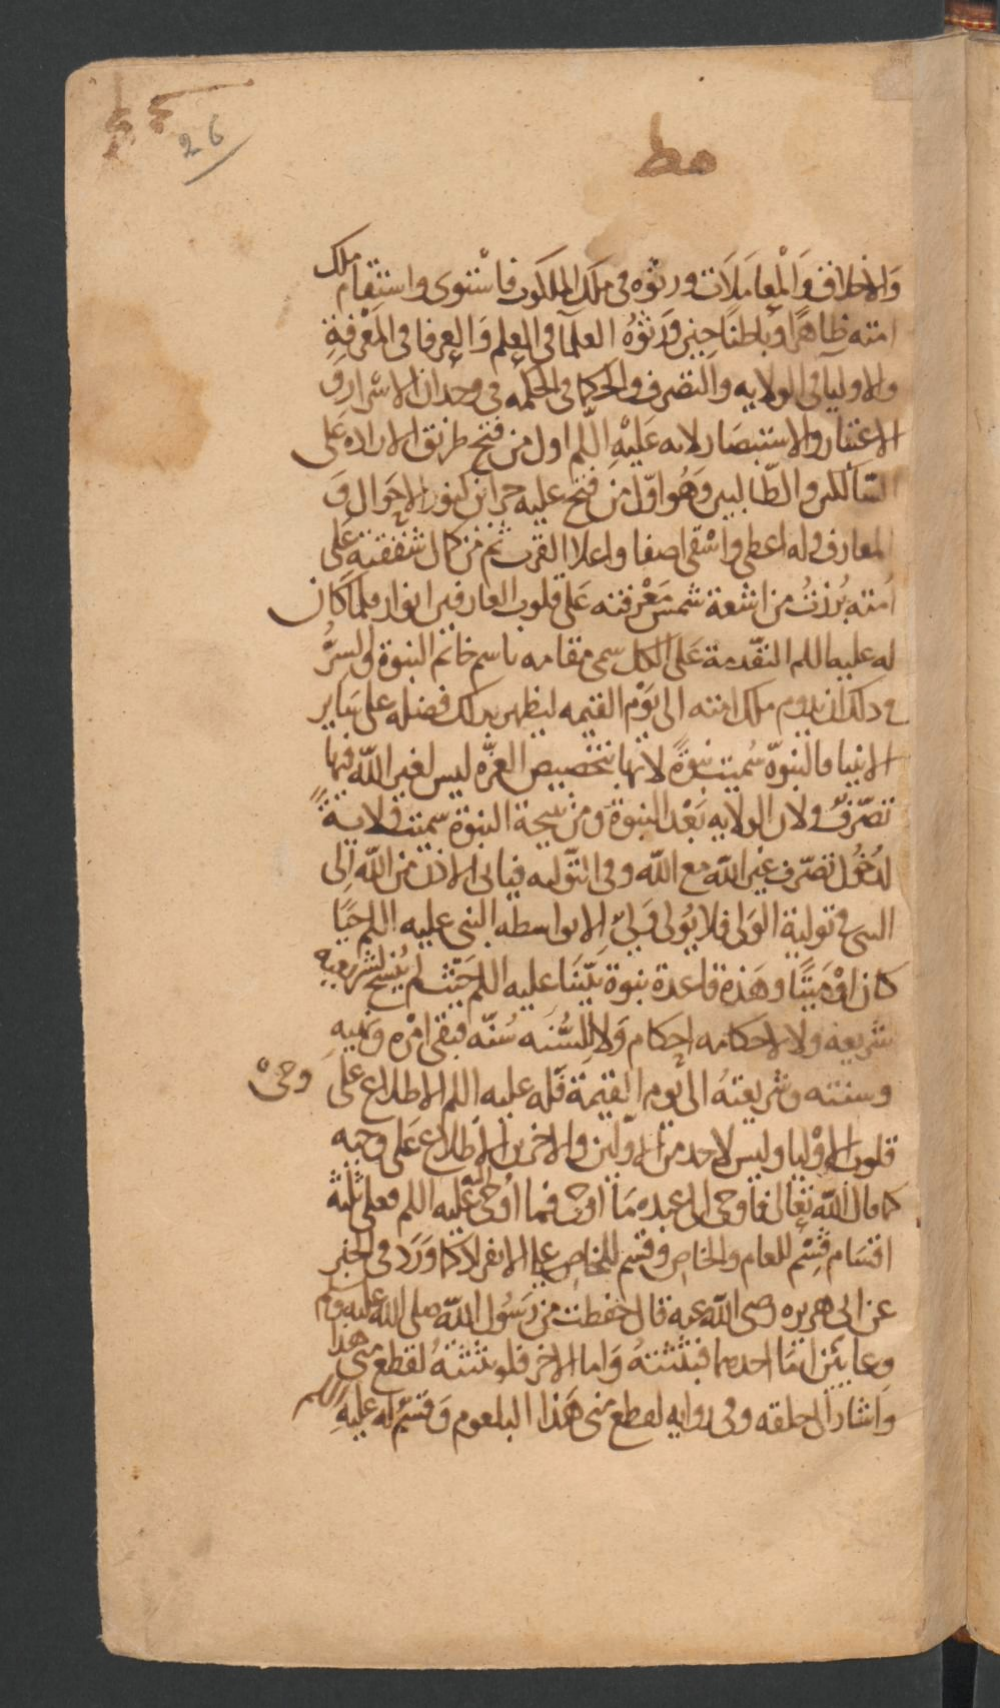 26
مط
والاخلاق وَالْمعامَلَات ورثوه فى ملك الملكوت فاسْتوى واستقام ملك
امته ظاهرًا وباطنًا حين ورثوهُ العلما فى العلم وَالعرفا فى المَعْرفةِ
والاوليا فى الولايه والتصرف والحكما فى الحكمه فى وجدان الاسْرار وَ
الاعتبار والاستبصَار لانه عَليْهِ اللم اول من فتح طريق الاراده عَلى
السّالكين والطّالبين وَهُو اوّل من فتح عليه خزاين كنوز الاحَوال وَ
المعارف وله اعطى واسْقى اصفا واعلا القرب ثم من كمال شفقته عَلى
اُمته بُرزتْ من اشعة شمس مَعْرفته عَلى قلوب العارفين انوار فلما كان
له عليه اللم التقّدمة عَلى الكل سمى مقامه باسم خاتم النبوة والسرُّ
فى ذلك ان يدوم ملك امته الى يَوْم القيمه ليظهر بذلك فضله على سَاير
الانبيا فالنبوّة سُميت نبوةً لانها بتخصيص العزّه ليس لغير اللّه فيها
تصّرفٌ ولان الولايه بَعْد النبوة ومن نتيجة النبوة سميت ولايةً
لدُخُول تصّرف غير اللّه مع اللّه وفى التّوليه فياتى الاذن من اللّه الى
النبى فى تولية الوَلى فلا يُولى وَلىٌ الا بواسطه النبى عليه اللم حيًا
كان اوْ مَيتًا وهَذه قاعدة نبوة نبّينَا عليه اللم حَيْث لم يُنسخ لشريعته
شريعه ولا لاحكامه احكام وَلا لِسُّنَه سُنّه فبقى امْره وَنهيه
وسنته وشريعتهُ الى يوم القيمة فَله عليه اللم الاطلاع على وحىٌ
قلوب الاوْليا وليس لاحد من الاوّلين والاخرين الاطلاع عَلى وحيه
كما قال اللّه تعالى فاوحى الى عبده مَا اوحى فما اوُحى اليه عَليه اللم فعلى ثلثة
اقسَام قِسْم للعام والخاص وقسْم للخاص على الانفراد كما وَرَد فى الخبر
عن ابى هريره رضى اللّه عنه قال حفظت من رَسُول اللّه صلى اللّه عليه وسلم
وعايَيْن امّا احدهما فبثثتهُ وَاما الاخر فلو بثثتهُ لقطع منى هذا
وَاشار الى حلقه وفى روايه لقطع منى هَذا البلعوم وَقسْم له عليهِ اللم